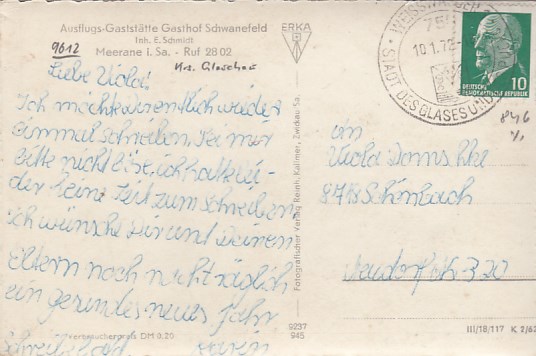 Ausflugs-Gaststätte Gasthof Schwanefeld
Inh. E. Schmidt
Meerane i. Sa. - Ruf 28 02
9612
Krs. Glauchau
ERKA
Liebe Viola!
Ich möchte wieder
einmal schreiben. Sei mir
bitte nicht böse, ich hatte lei-
der keine Zeit zum schreiben
Ich wünsche Dir und Deinen
Eltern noch nachträglich
ein gesundes neues Jahr
Schreibe bald
Karin
Verbraucherpreis DM 0,20
Fotografischer Verlag Reinh. Kallmer, Zwickau Sa.
9237
945
10.1.73
STADT DES GLASES UND
10
DEUTSCHE
DEMOKRATISCHE REPUBLIK
8416
an
Viola
Schönbach
III/18/117 K 2/62